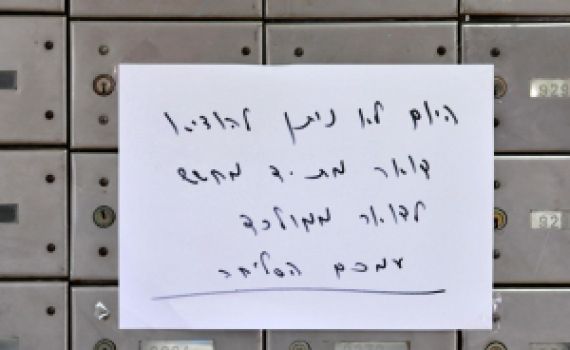 היום לא ניתן להוציא
דואר מת.ד מחשש
לדואר ממולכד
עמכם הסליחה
929
92